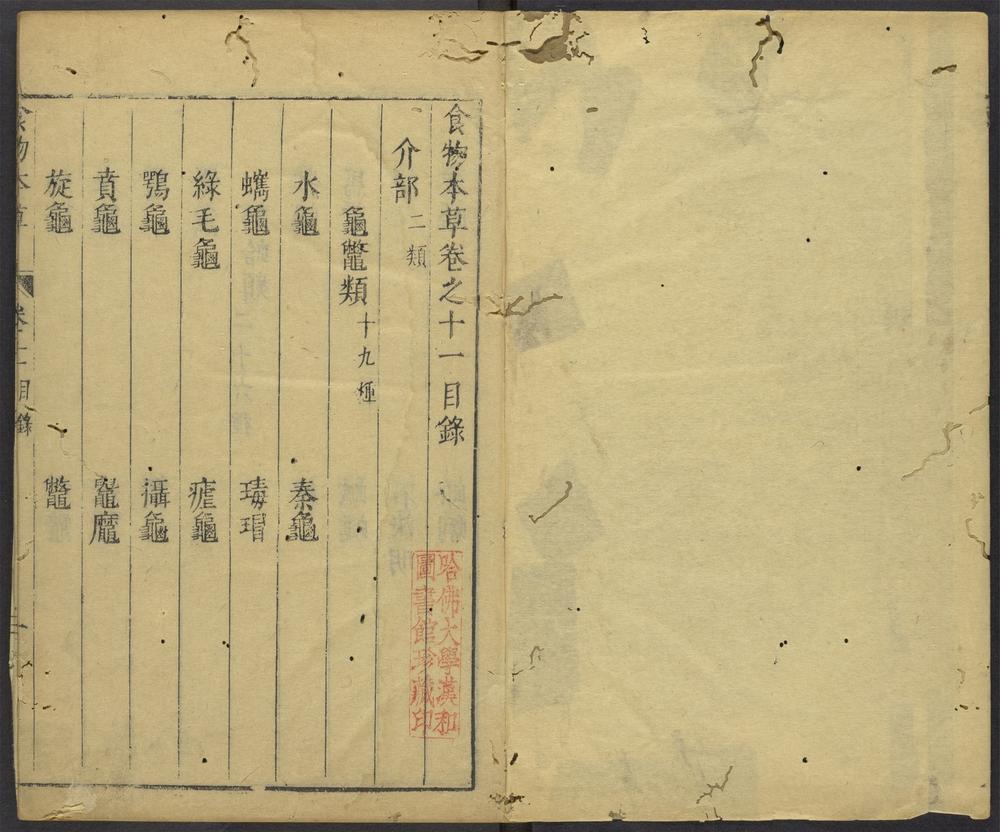 食物本草卷之十一目錄
介部二類
龜鼈類十九種
水龜
秦龜
蠵龜
瑇瑁
綠毛龜
瘧龜
鶚龜
攝龜
賁龜
黿
旋龜
鼈
食物本草
卷十一目錄
一
哈佛大學漢和
圖書館珍藏印